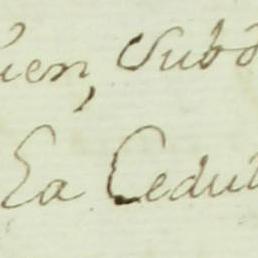 ien, Subd
La Cedul